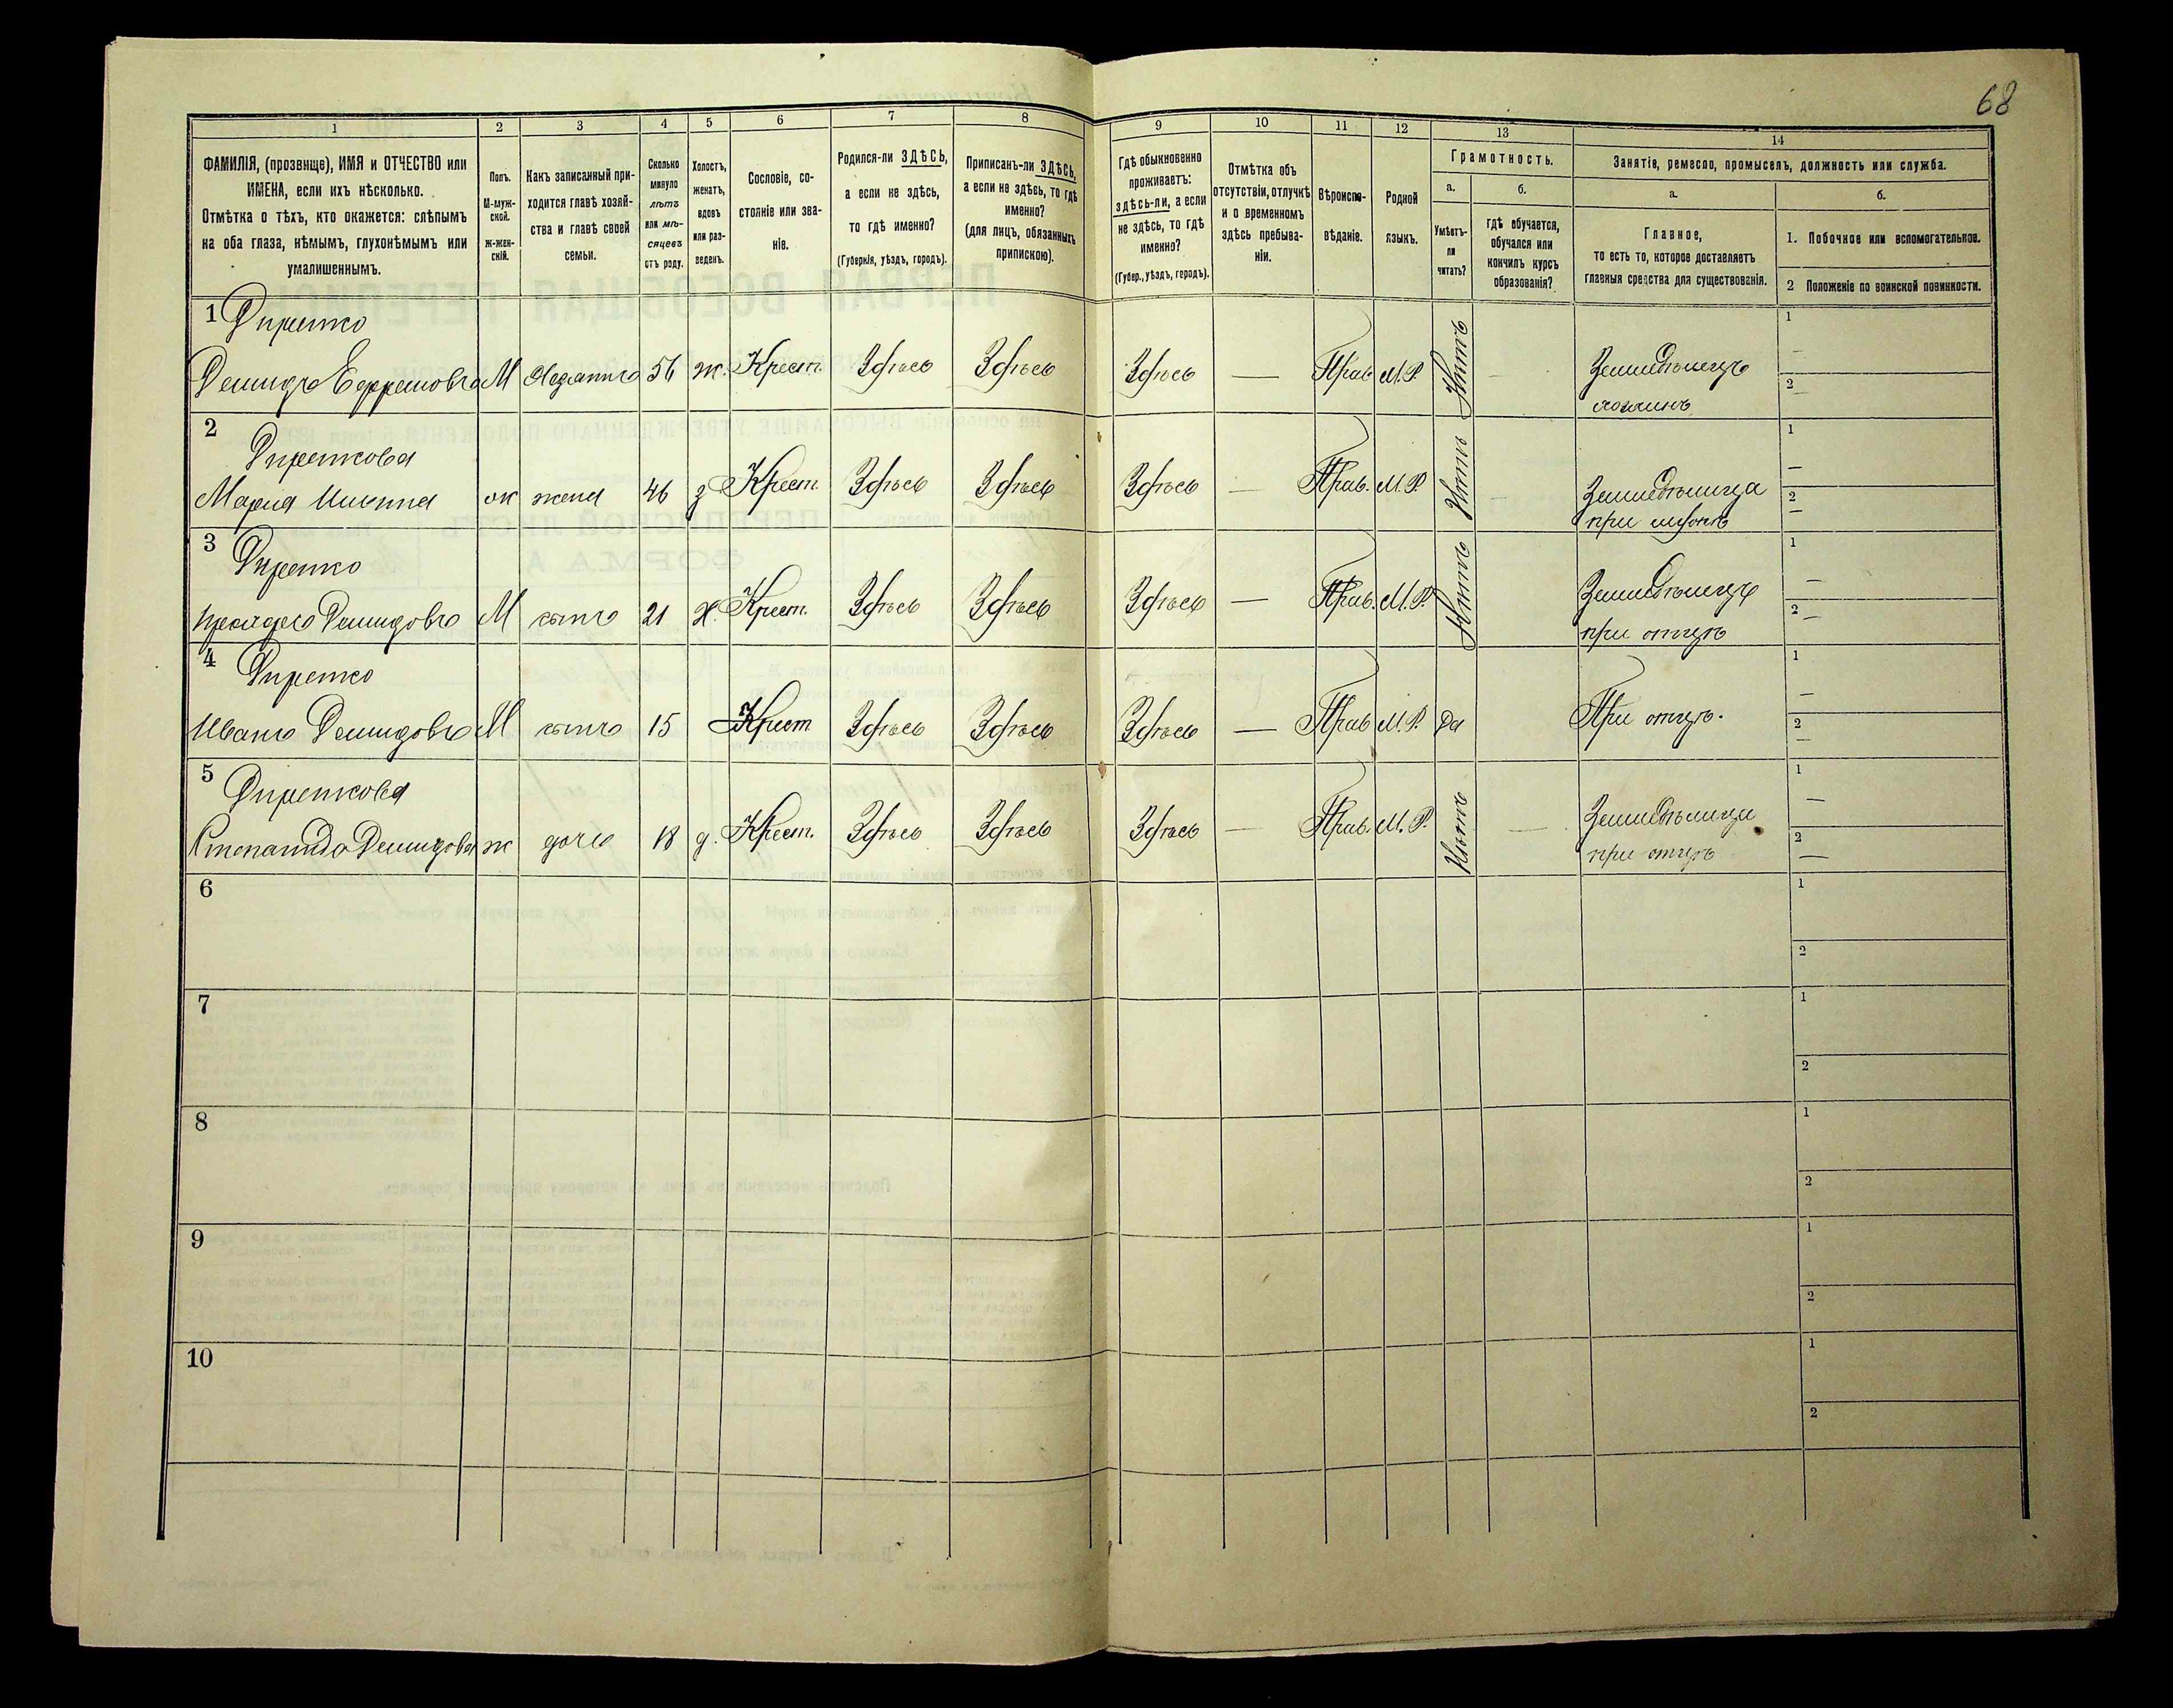 68
1
2
3
4
5
6
7
8
9
10
11
12
13
14
ФАМИЛІЯ, (прозвище), ИМЯ и ОТЧЕСТВО или
ИМЕНА, если ихъ нѣсколько.
Отмѣтка о тѣхъ, кто окажется: слѣпымъ
на оба глаза, нѣмымъ, глухонѣмымъ или
умалишеннымъ.
Полъ.
М-муж-
ской.
ж-жен-
скій.
Какъ записанный при-
ходится главѣ хозяй-
ства и главѣ своей
семьи.
Сколько
минуло
лѣтъ
или мѣ-
сяцевъ
отъ роду.
Холостъ,
женатъ,
вдовъ
или раз-
веденъ.
Сословіе, со-
стояніе или зва-
ніе.
Родился-ли ЗДѢСЬ,
а если не здѣсь,
то гдѣ именно?
(Губернія, уѣздъ, городъ).
Приписанъ-ли ЗДѢСЬ,
а если не здѣсь, то гдѣ
именно?
(для лицъ, обязанныхъ
припискою).
Гдѣ обыкновенно
проживаетъ:
здѣсь-ли, а если
не здѣсь, то гдѣ
именно?
(Губер., уѣздъ, городъ).
Отмѣтка объ
отсутствіи, отлучкѣ
и о временномъ
здѣсь пребыва-
ніи.
Вѣроиспо-
вѣданіе.
Родной
языкъ.
Грамотность.
а.
б.
Умѣетъ-
ли
читать?
гдѣ обучается,
обучался или
кончилъ курсъ
образованія?
Занятіе, ремесло, промыселъ, должность или служба.
а.
б.
Главное,
то есть то, которое доставляетъ
главныя средства для существованія.
1. Побочное или вспомогательное.
2 Положеніе по воинской повинности.
1
Демидъ Ефремовъ М 56 ж. Крест. Здѣсь Здѣсь Здѣсь — Прав М.Р. Нѣтъ — Земледѣлецъ
хозяинъ
1
2
2
Мария жена 46 з Крест. Здѣсь Здѣсь Здѣсь — Прав. М.Р. Нѣтъ — Земледѣлица
при
1
2
3
Демидовъ М сынъ 21 х. Крест. Здѣсь Здѣсь Здѣсь — Прав. М.Р. Нѣтъ Земледѣлецъ
при отцѣ
1
2
4
Иванъ Демидовъ М сынъ 15 Крест Здѣсь Здѣсь Здѣсь — Прав М.Р. да При отцѣ.
1
2
5
Демидова ж дочь 18 д. Крест. Здѣсь Здѣсь Здѣсь — Прав. М.Р. Нѣтъ — Земледѣлица
при отцѣ
1
2
6
1
2
7
1
2
8
1
2
9
1
2
10
1
2